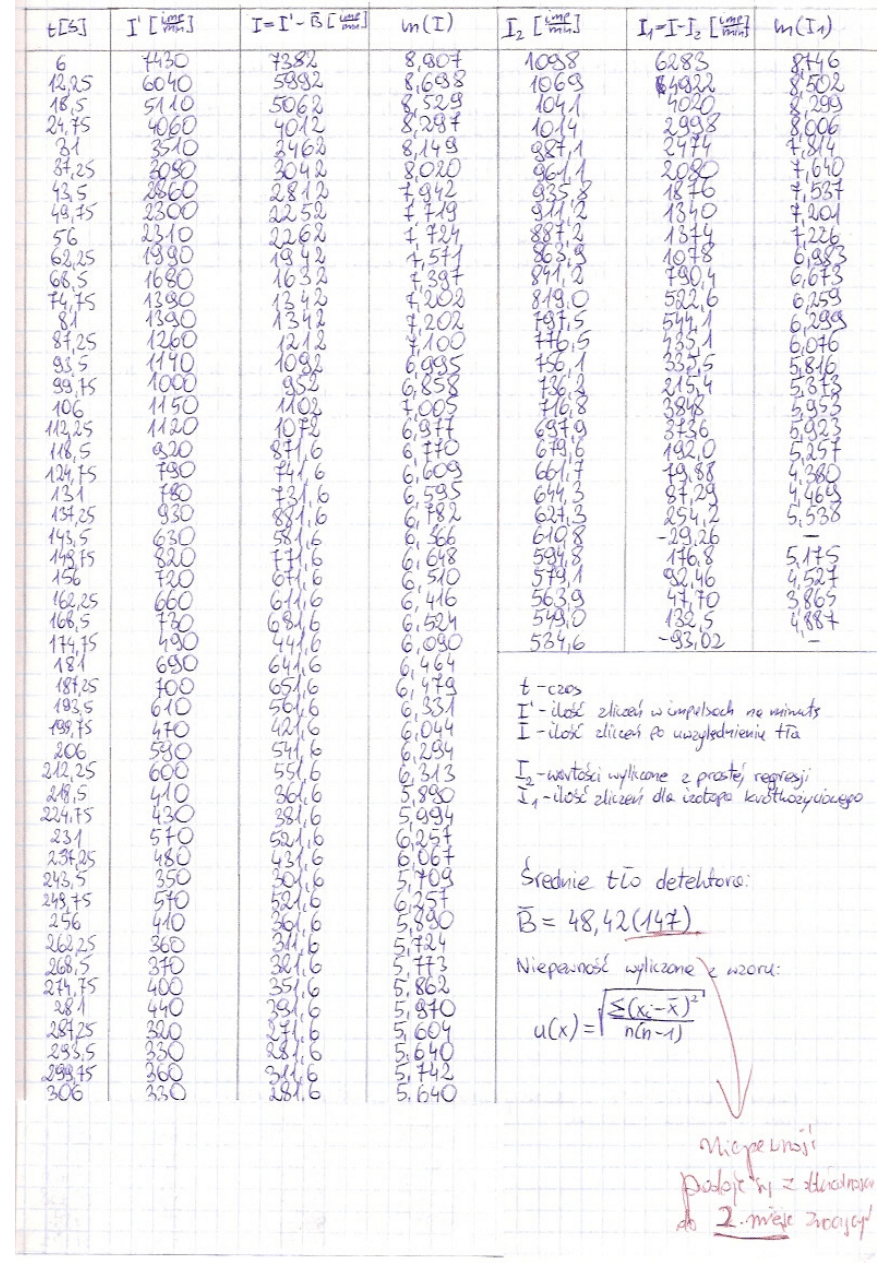 t[s] I' [imp/min] I=I'-B̄ [imp/min] ln(I) I₂ [imp/min] I₁=I-I₂ [imp/min] ln(I₁)
6 7430 7382 8,907 1098 6283 8,746
12,25 6040 5992 8,698 1069 4922 8,502
18,5 5110 5062 8,529 1041 4020 8,299
24,75 4060 4012 8,297 1014 2998 8,006
31 3510 3462 8,149 987,1 2474 7,814
37,25 3090 3042 8,020 961,1 2080 7,640
43,5 2860 2812 7,942 935,8 1876 7,537
49,75 2300 2252 7,719 911,2 1340 7,201
56 2310 2262 7,724 887,2 1374 7,226
62,25 1990 1942 7,571 863,9 1078 6,983
68,5 1680 1632 7,397 841,2 790,4 6,673
74,75 1390 1342 7,202 819,0 522,6 6,259
81 1390 1342 7,202 797,5 544,1 6,299
87,25 1260 1212 7,100 776,5 435,1 6,076
93,5 1140 1092 6,995 756,1 335,5 5,816
99,75 1000 952 6,858 736,2 215,4 5,373
106 1150 1102 7,005 716,8 384,8 5,953
112,25 1120 1072 6,977 697,9 373,6 5,923
118,5 920 871,6 6,770 679,6 192,0 5,257
124,75 790 741,6 6,609 661,7 79,88 4,380
131 780 731,6 6,595 644,3 87,29 4,469
137,25 930 881,6 6,782 627,3 254,2 5,538
143,5 630 581,6 6,366 610,8 -29,26 –
149,75 820 771,6 6,648 594,8 176,8 5,175
156 720 671,6 6,510 579,1 92,46 4,527
162,25 660 611,6 6,416 563,9 47,70 3,865
168,5 730 681,6 6,524 549,0 132,5 4,887
174,75 490 441,6 6,090 534,6 -93,02 –
181 690 641,6 6,464
187,25 700 651,6 6,479
193,5 610 561,6 6,331
199,75 470 421,6 6,044
206 590 541,6 6,294
212,25 600 551,6 6,313
218,5 410 361,6 5,890
224,75 430 381,6 5,994
231 570 521,6 6,257
237,25 480 431,6 6,067
243,5 350 301,6 5,709
249,75 570 521,6 6,257
256 410 361,6 5,890
262,25 360 311,6 5,724
268,5 370 321,6 5,773
274,75 400 351,6 5,862
281 440 391,6 5,970
287,25 320 271,6 5,604
293,5 330 281,6 5,640
299,75 360 311,6 5,742
306 330 281,6 5,640
t - czas
I' - ilość zliczeń w impulsach na minutę
I - ilość zliczeń po uwzględnieniu tła
I₂ - wartości wyliczone z prostej regresji
I₁ - ilość zliczeń dla izotopu krótkożyciowego
Średnie tło detektora:
B̄ = 48,42(147)
Niepewność wyliczona z wzoru:
u(x) = √(Σ(xᵢ-x̄)²/n(n-1))
Niepewność
podaje się z dokładnością
do 2. miejsc znaczących